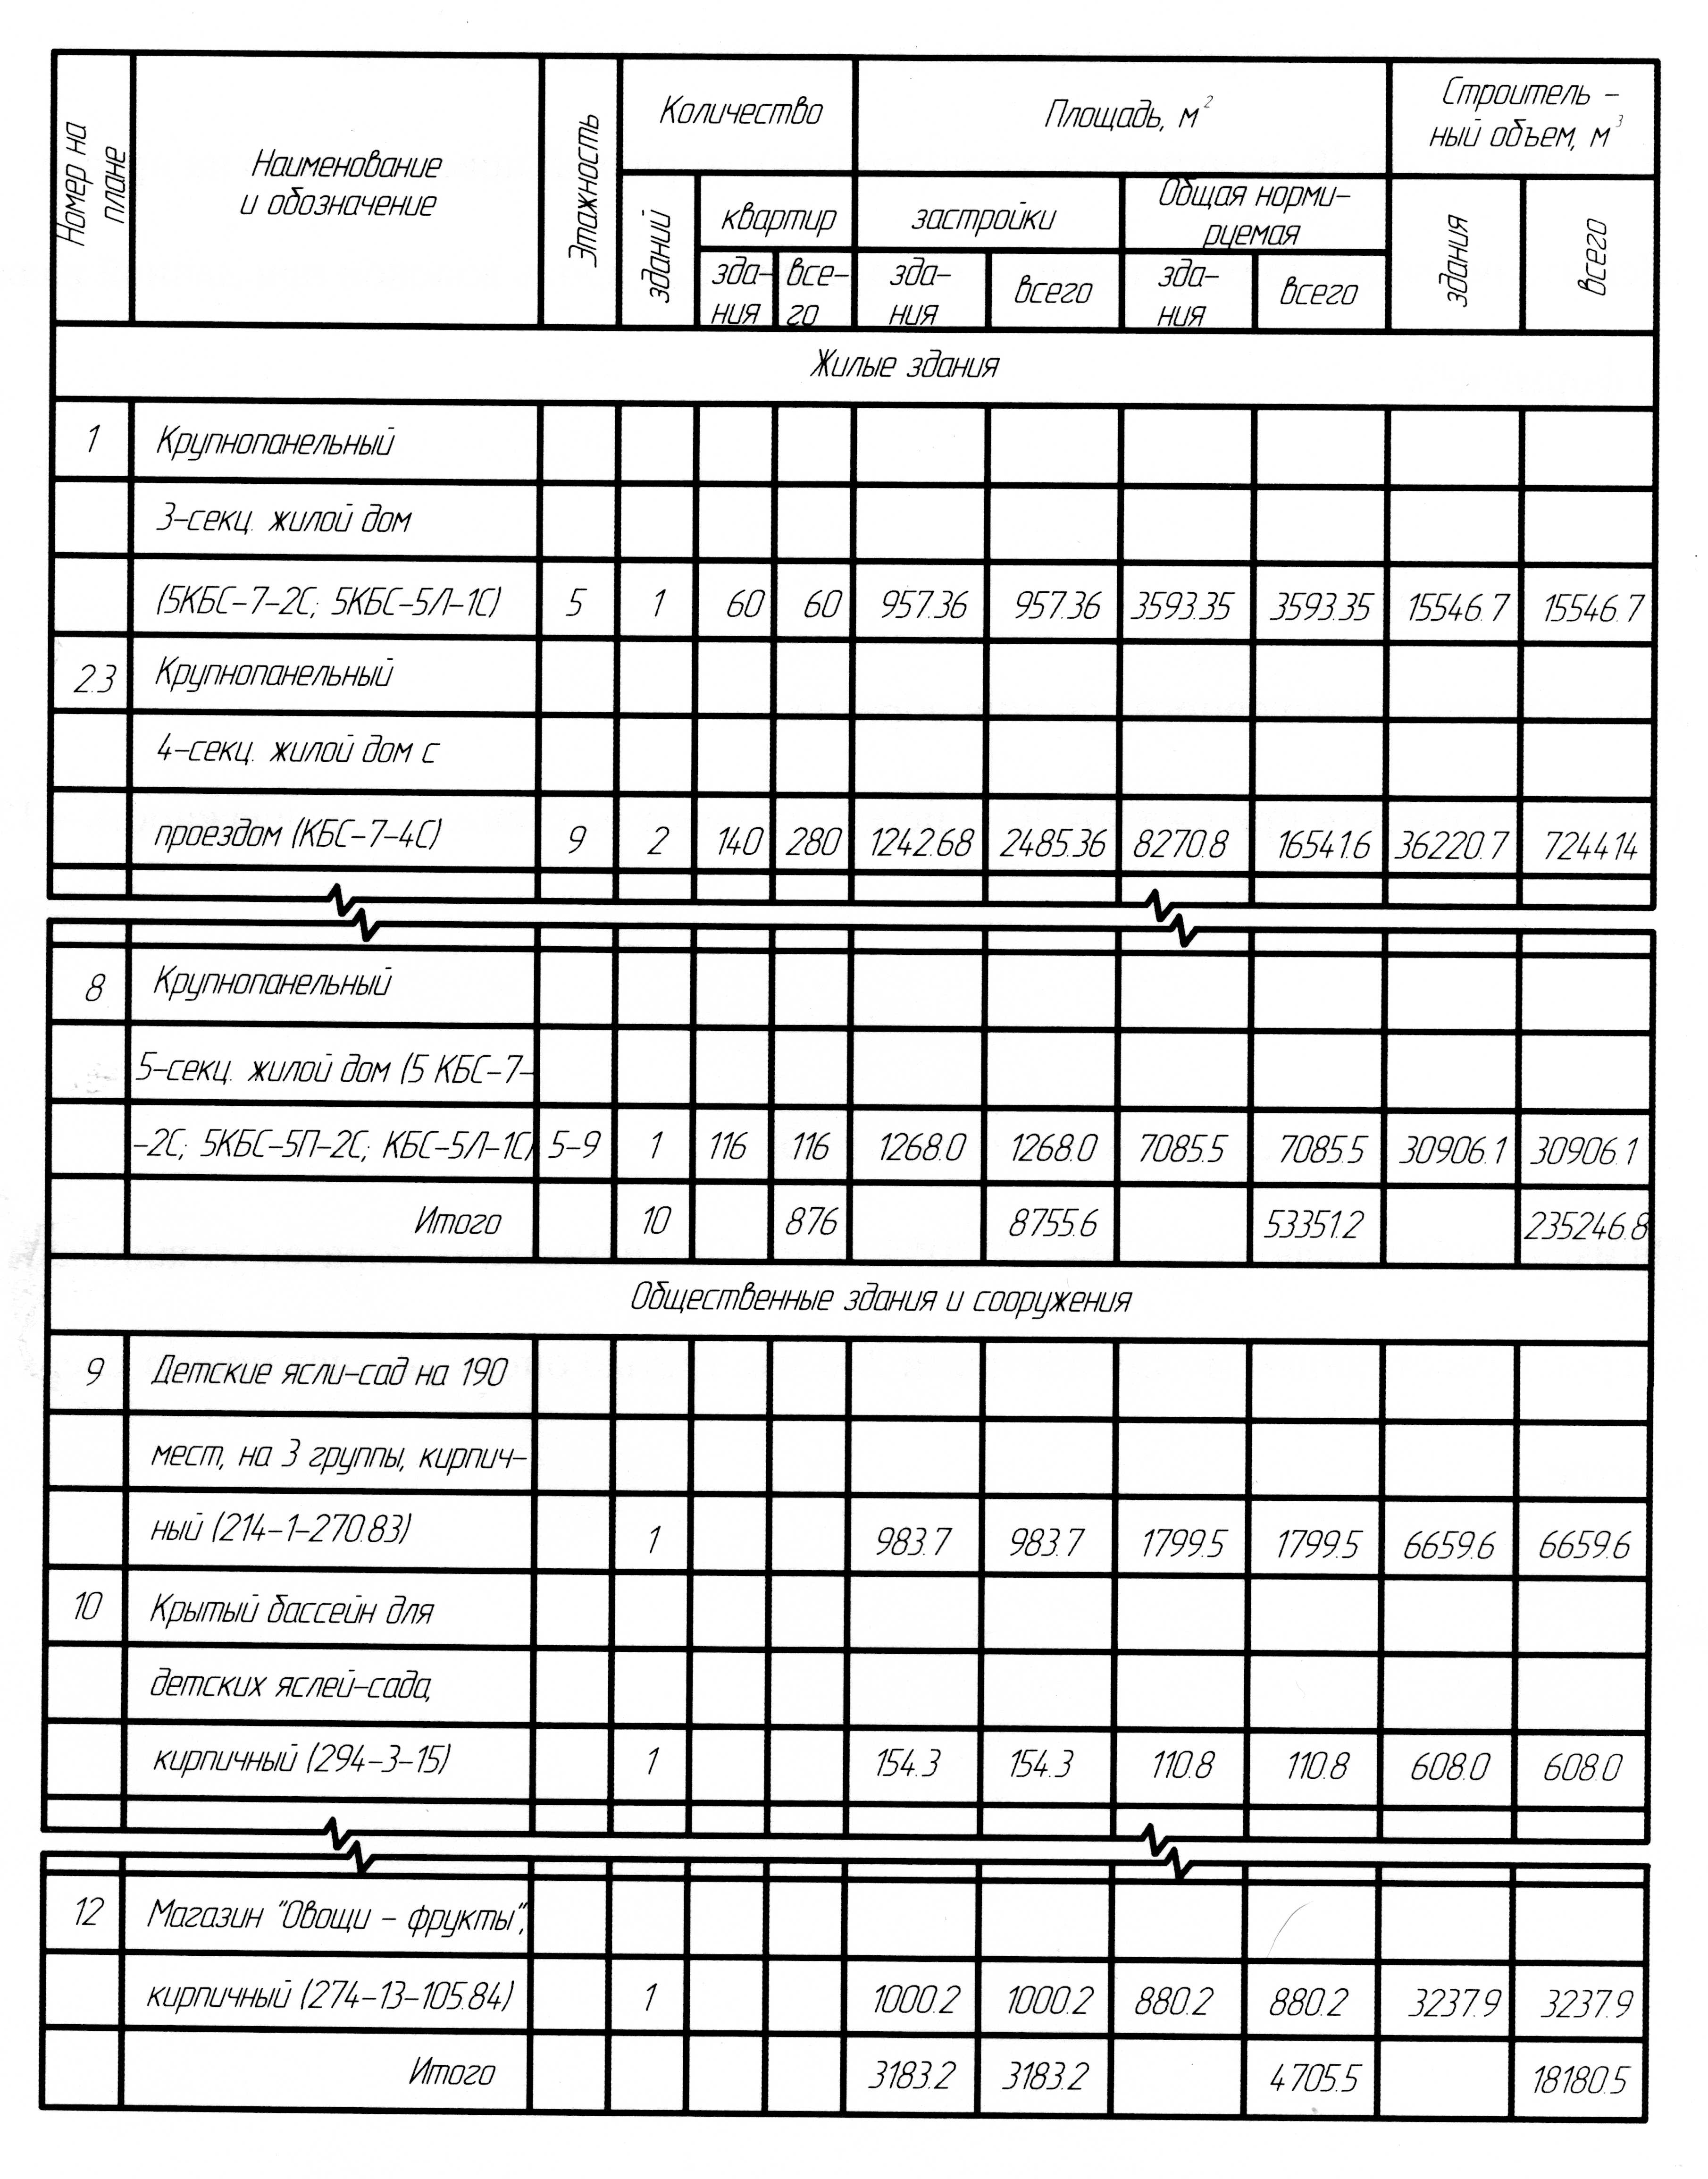 Номер на плане
Наименование и обозначение
Этажность
Количество
Площадь, м²
Строитель - ный объем, м³
зданий
квартир
застройки
Общая норми- руемая
здания
всего
зда- ния
все- го
зда- ния
всего
зда- ния
всего
Жилые здания
1 Крупнопанельный
3-секц. жилой дом
(5КБС-7-2С; 5КБС-5Л-1С) 5 1 60 60 957.36 957.36 3593.35 3593.35 15546.7 15546.7
2.3 Крупнопанельный
4-секц. жилой дом с
проездом (КБС-7-4С) 9 2 140 280 1242.68 2485.36 8270.8 16541.6 36220.7 72441.4
8 Крупнопанельный
5-секц. жилой дом (5 КБС-7-
-2С; 5КБС-5П-2С; КБС-5Л-1С) 5-9 1 116 116 1268.0 1268.0 7085.5 7085.5 30906.1 30906.1
Итого 10 876 8755.6 53351.2 235246.8
Общественные здания и сооружения
9 Детские ясли-сад на 190
мест, на 3 группы, кирпич-
ный (214-1-270.83) 1 983.7 983.7 1799.5 1799.5 6659.6 6659.6
10 Крытый бассейн для
детских яслей-сада,
кирпичный (294-3-15) 1 154.3 154.3 110.8 110.8 608.0 608.0
12 Магазин "Овощи - фрукты",
кирпичный (274-13-105.84) 1 1000.2 1000.2 880.2 880.2 3237.9 3237.9
Итого 3183.2 3183.2 4705.5 18180.5